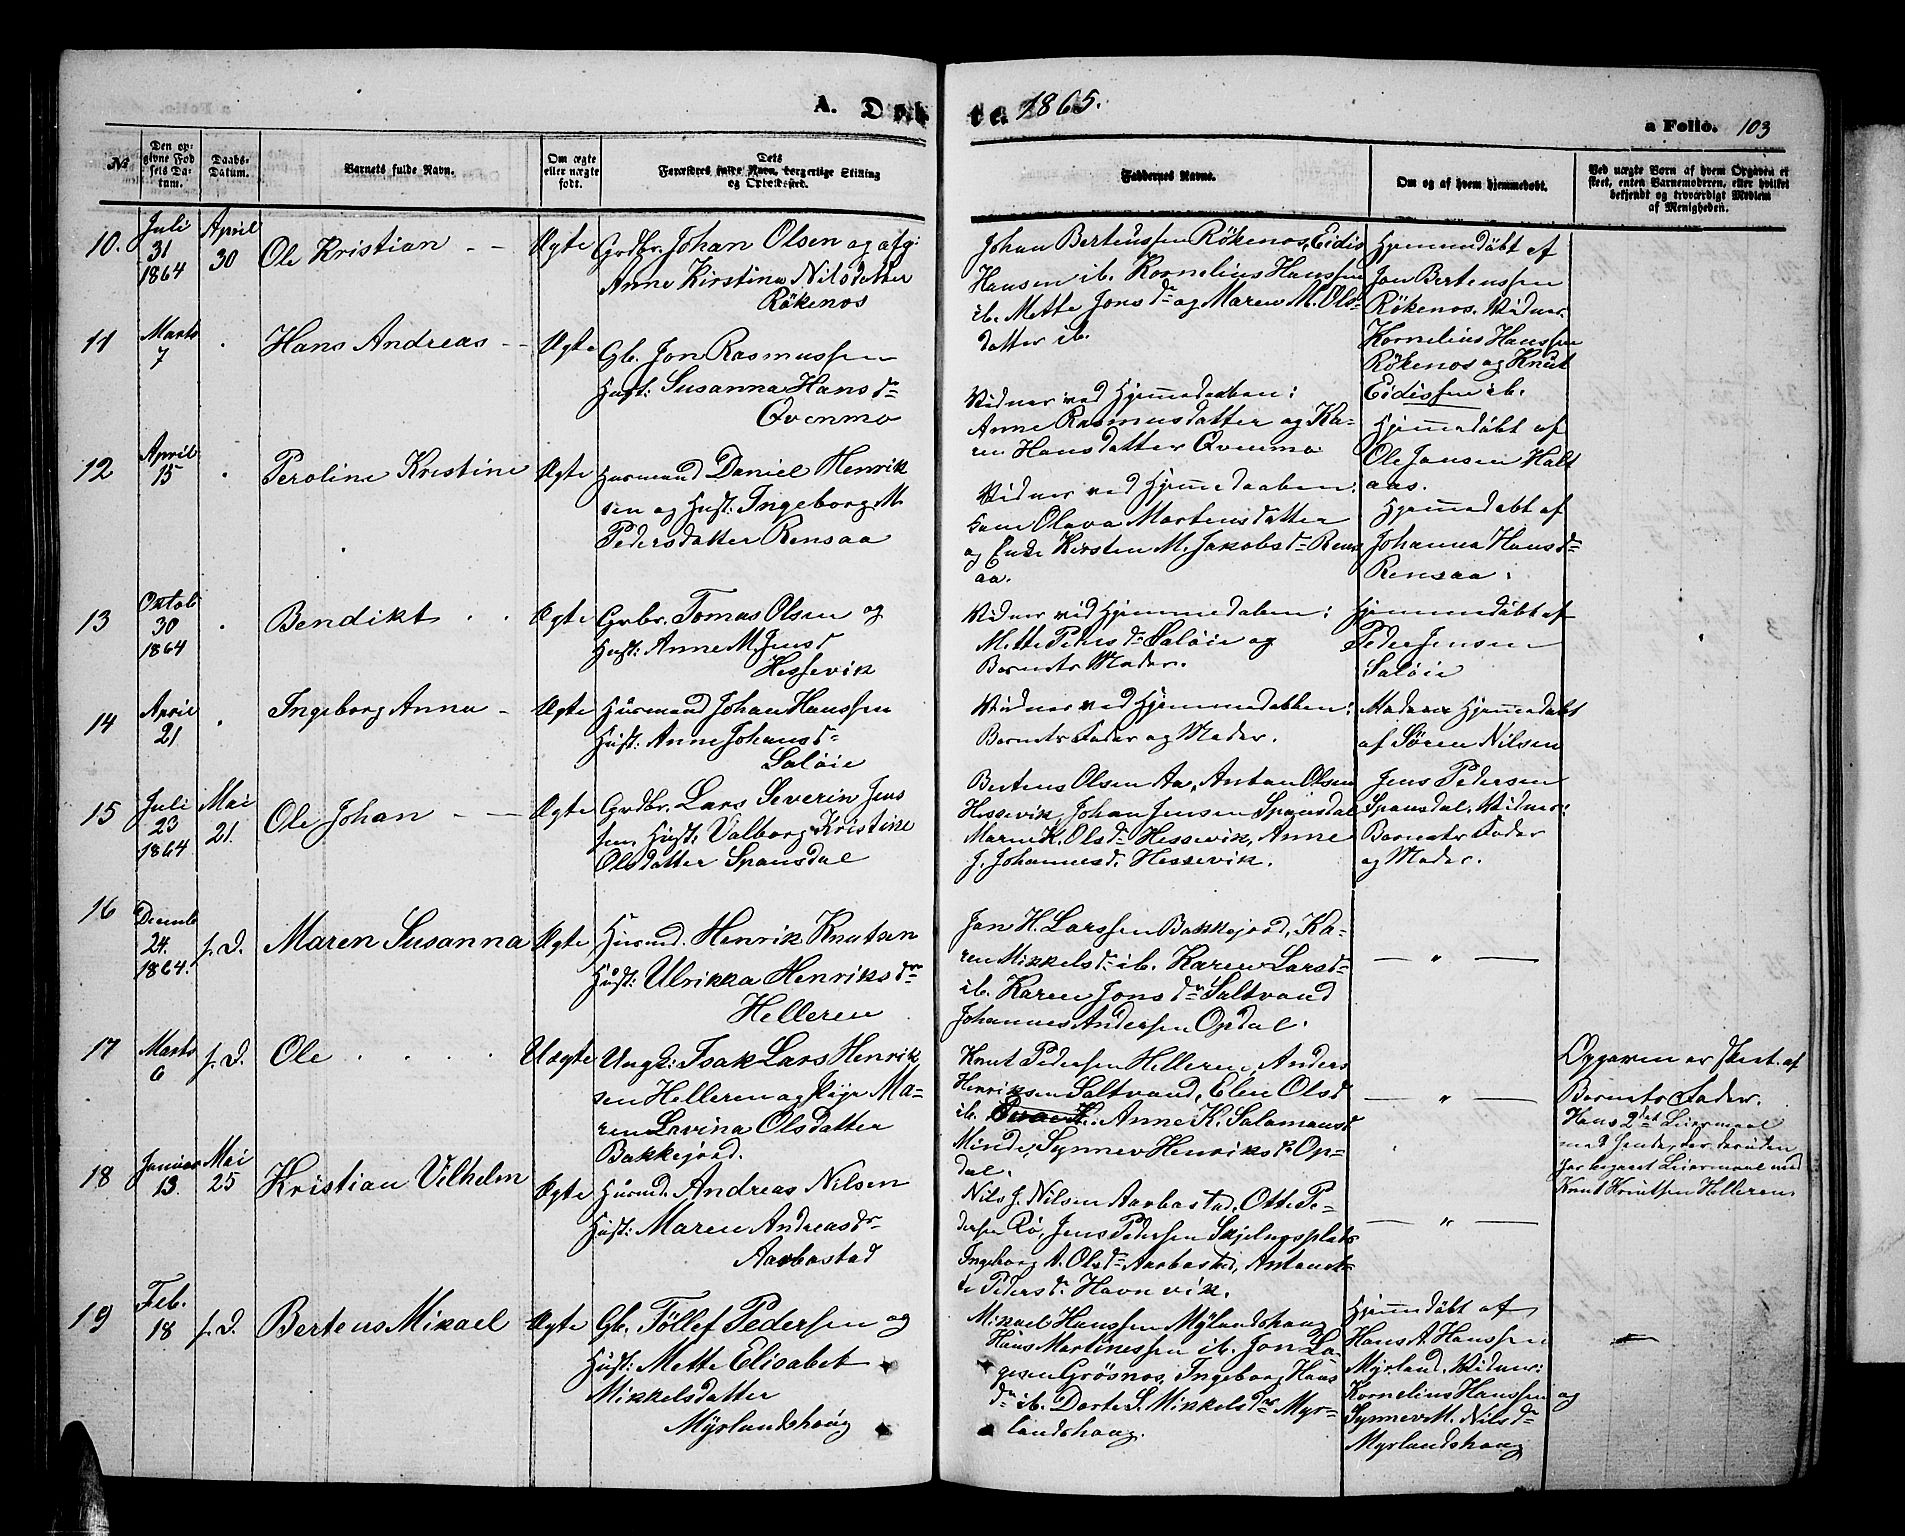 A. Døb
te. 1865.
a Folio. 103
No
Den op-
givne Fød
sels Da-
tum.
Daabs-
Datum.
Barnets fulde Navn.
Om ægte
eller uægte
født.
Dets
Forældres fulde Navn, borgerlige Stilling
og Opholdssted.
Faddernes Navne.
Om og af hvem hjemmedøbt.
Ved uægte Børn af hvem Opgaven er
skeet, enten Barnemoderen, eller hvilket
bekjendt og troværdigt Medlem
af Menigheden.
10.
Juli
31
1864
April
30
Ole Kristian
Ægte
Grdbr. Johan Olsen og afg:
Anne Kirstina Nilsdatter
Rökenos
Johan Bertenssen Rökenos, Eidis
Hansen ib. Kornelius Hanssen
ib. Mette Jonsdr og Maren M. Ols-
datter ib.
Hjemmedöbt af
Jon Bertenssen
Rökenos. Vidner
Kornelius Hanssen
Rökenos og Knut
Eidissen ib.
11
Marts
7
Hans Andreas
Ægte
Gb. Jon Rasmussen
Hust: Susanna Hansdr
Qvenmo
Vidner ved Hjemmedaaben:
Anne Rasmusdatter og Ka-
ren Hansdatter Qvenmo
Hjemmedöbt af
Ole Jansen Halt
aas.
12
April
15
Peroline Kristine
Ægte
Husmand Daniel Henrik
sen og Hust: Ingeborg M.
Pedersdatter Rensaa
Vidner ved Hjemmedaaben:
Olava Martensdatter
og Enke Kirsten M. Jakobsdr Rens
aa.
Hjemmedøbt af
Johanna Hansdr
Rensaa.
13
Oktob
30
1864
Bendikt
Ægte
Grbr. Tomas Olsen og
Hust: Anne M. Jensd
Hessevik
Vidner ved Hjemmedaben:
Mette Pedersdr Salöie og
Barnets Moder.
Hjemmedöbt af
Peder Jensen
Salöie
14
April
21
Ingeborg Anna
Ægte
Husmand Johan Hanssen
Hust: Anne Johansdr
Salöie
Vidner ved Hjemmedabben:
Barnets Fader og Moder.
Hjemmedøbt
af Sören Nilsen
15
Juli
23
1864
Mai
21.
Ole Johan
Ægte
Grdbr. Lars Severin Jens
sen Hust: Valborg Kristine
Olsdatter Spansdal
Bertens Olsen Aa, Antan Olsen
Hessevik, Johan Jensen Spansdal
Maren K. Olsdr Hessevik, Anne
J. Johannesd. Hessevik.
Jens Pedersen
Spansdal. Vidner:
Barnets Fader
og Moder.
16
Decemb
24.
1864.
s. D.
Maren Susanna
Ægte
Husmd. Henrik Knutsen
Hust: Ulrikka Henriksdr
Helleren
Jon H. Larssen Bakkejord, Ka-
ren Mikkelsdr ib. Karen Larsdr
ib. Karen Jonsdr Saltvand
Johannes Andersen Opdal.
— " —
17
Marts
6
s. D.
Ole
Uægte
Ungk: Isak Lars Henrik
sen Helleren og Pige Ma-
ren Lovina Olsdatter
Bakkejord.
Knut Pedersen Helleren, Anders
Henriksen Saltvand, Elen Olsd
ib. Anne K. Salamonsd
Minde, Synnev Henriksdr Op-
dal.
— " —
Opgaven er skeet af
Barnets Fader.
Hans 2det Leiermaal
med hende, der desuden
har begaaet Leiermaal med
Knut Knutsen Helleren.
18
Januar
13.
Mai
25
Kristian Vilhelm
Ægte
Husmd. Andreas Nilsen
Hust: Maren Andreasdr
Aarbostad
Nils J. Nilsen Aarbostad, Otte Pe-
dersen Rö, Jens Pedersen Skjelnesplads
Ingeborg A. Olsdr Aarbostad, Antonet-
te Pedersdr Havnvik.
— " —
19
Feb.
18
s. D.
Bertens Mikael
Ægte
Gb. Töllef Pedersen og
Hust: Mette Elisabet
Mikkelsdatter
Myrlandshaug
Mikael Hanssen Myrlandshaug
Hans Martinessen ib. Jon La-
gesen Grösnos, Ingeborg Hans
dr ib. Dorte S. Mikkelsdr Myr-
landshaug.
Hjemmedöbt af
Hans A. Hanssen
Myrland. Vidner:
Kornelius Hanssen og
Synnev M. Nilsdr
Myrlandshaug